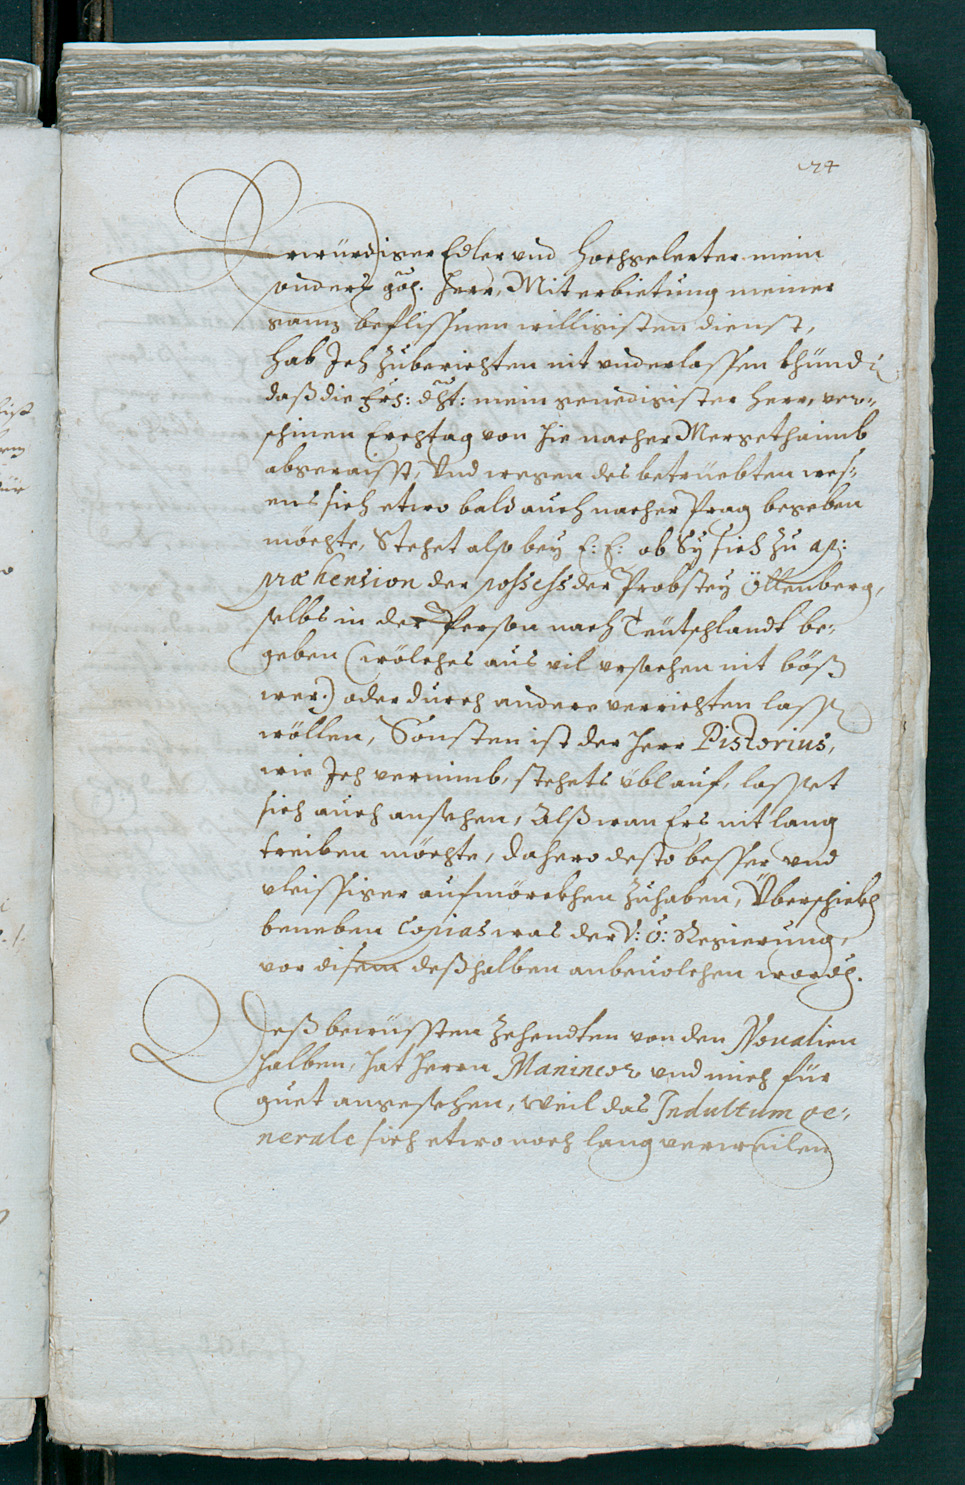 74
Erwürdiger Edler vnd hochgelerter mein
sonders g: herr, Mit erbietung meiner
ganz beflissnen willigisten dienst,
hab Ich zuberichten nit vnderlassen khünd:
daß die Frh: dht: mein genedigister herr, ver-
schinen Erchtag von hie nacher Mergethaimb
abgeraisst, Vnd wegen des betrüebten wes-
ens sich etwo bald auch nacher Prag begeben
möchte, Stehet also bey E: E: ob Sy sich zu ap:
præhension der possess der Probstey Öllenberg,
selbs in der Person nach Teütschlandt be-
geben (wölches aus vil vrsachen nit böß
wer:) oder durch andere verrichten lass
wöllen, Sonsten ist der Herr Pistorius,
wie Ich vernimb, stehets übl auf, lasset
sich auch ansehen, Alß wan Ers nit lang
treiben möchte, dahero desto besser vnd
vleissiger aufmörckhen zuhaben, Überschickh
beneben Copias was der V: Ö: Regierung,
vor disem deßhalben anbeuolchen word.
Deß bewüssten zehendten von den Noualien
halben, hat herrn Manincor vnd mich für
guet angesehen, weil das Indultum ge-
nerale sich etwo noch lang verweilen